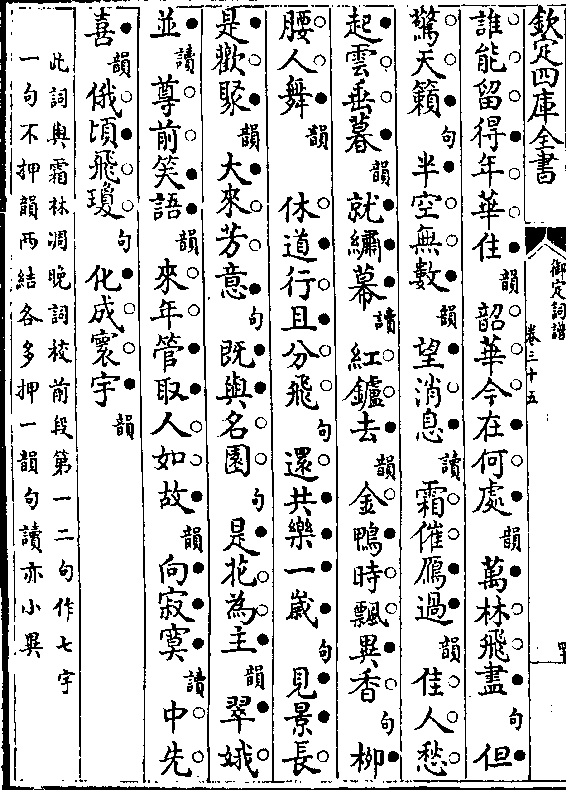 欽定四庫全書
御定詞譜
卷三十五
誰能留得年華住韻韶華今在何處韻萬林飛盡句但
驚天籟句半空無數韻望消息讀霜催鴈過韻佳人愁
起雲垂暮韻就繡幕讀紅鑪去韻金鴨時飄異香句柳
腰人舞韻休道行且分飛句還共樂一嵗句見景長
是歡聚韻大來芳意句既與名園句是花為主韻翠娥
並讀尊前笑語韻來年管取人如故韻向寂寞讀中先
喜韻俄頃飛瓊句化成寰宇韻
此詞與霜林凋晚詞校前段第一二句作七字
一句不押韻兩結各多押一韻句讀亦小異